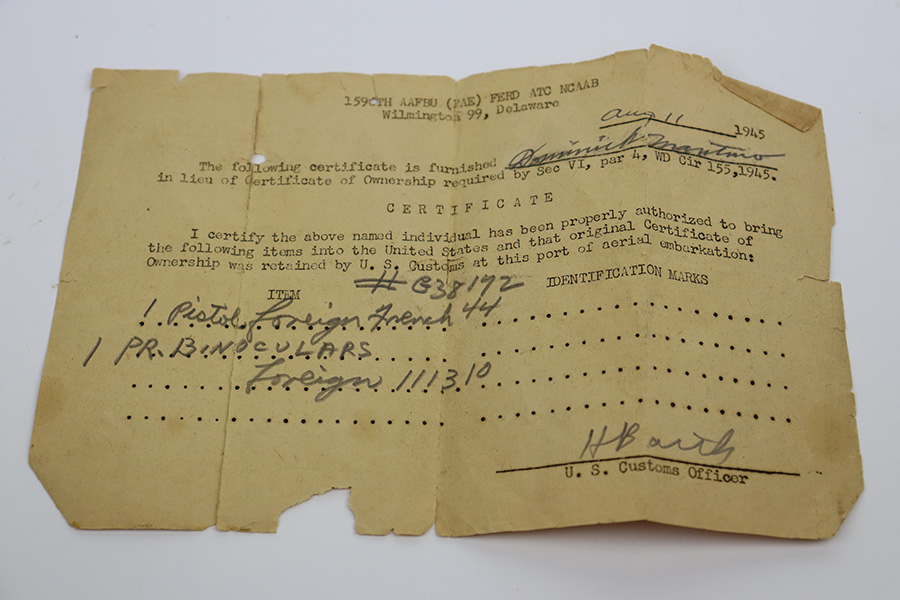 1590TH AAFBU (FAE) FERD ATC NCAAB
Wilmington 99, Delaware
Aug 11 1945
The following certificate is furnished Dominick Martino
in lieu of Certificate of Ownership required by Sec VI, par 4, WD Cir 155,1945.
CERTIFICATE
I certify the above named individual has been properly authorized to bring
the following items into the United States and that original Certificate of
Ownership was retained by U. S. Customs at this port of aerial embarkation:
ITEM # G38192 IDENTIFICATION MARKS
1 Pistol foreign French 44
1 PR. BINOCULARS
foreign 111310
H Barth
U. S. Customs Officer